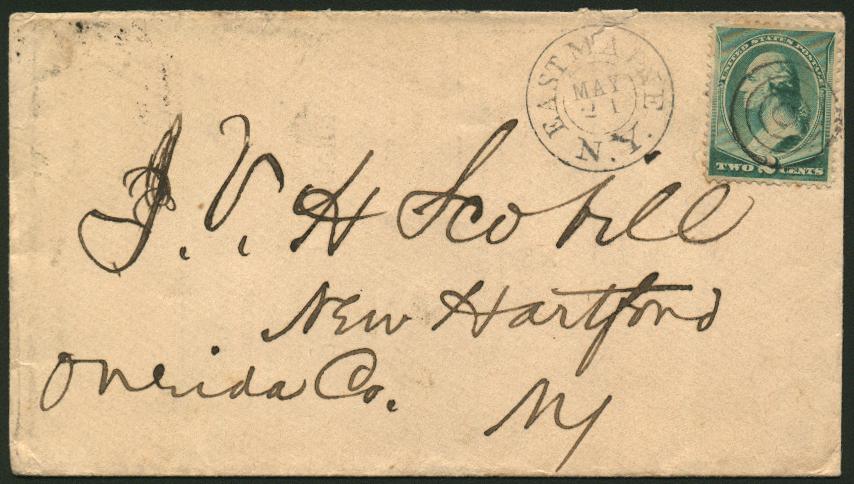 EAST MAINE. N.Y.
MAY
21
UNITED STATES POSTAGE
TWO 2 CENTS
J. V. H Scovill
New Hartford
Oneida Co.
NY